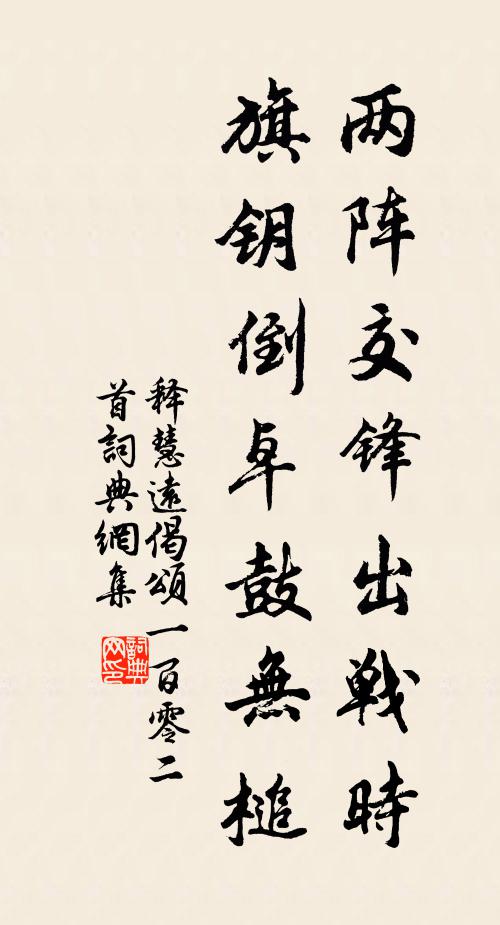 两阵交锋出戦時
旗钥倒卓鼓無槌
释慧遠偈頌一百零二
首詞典網集
詞典网印